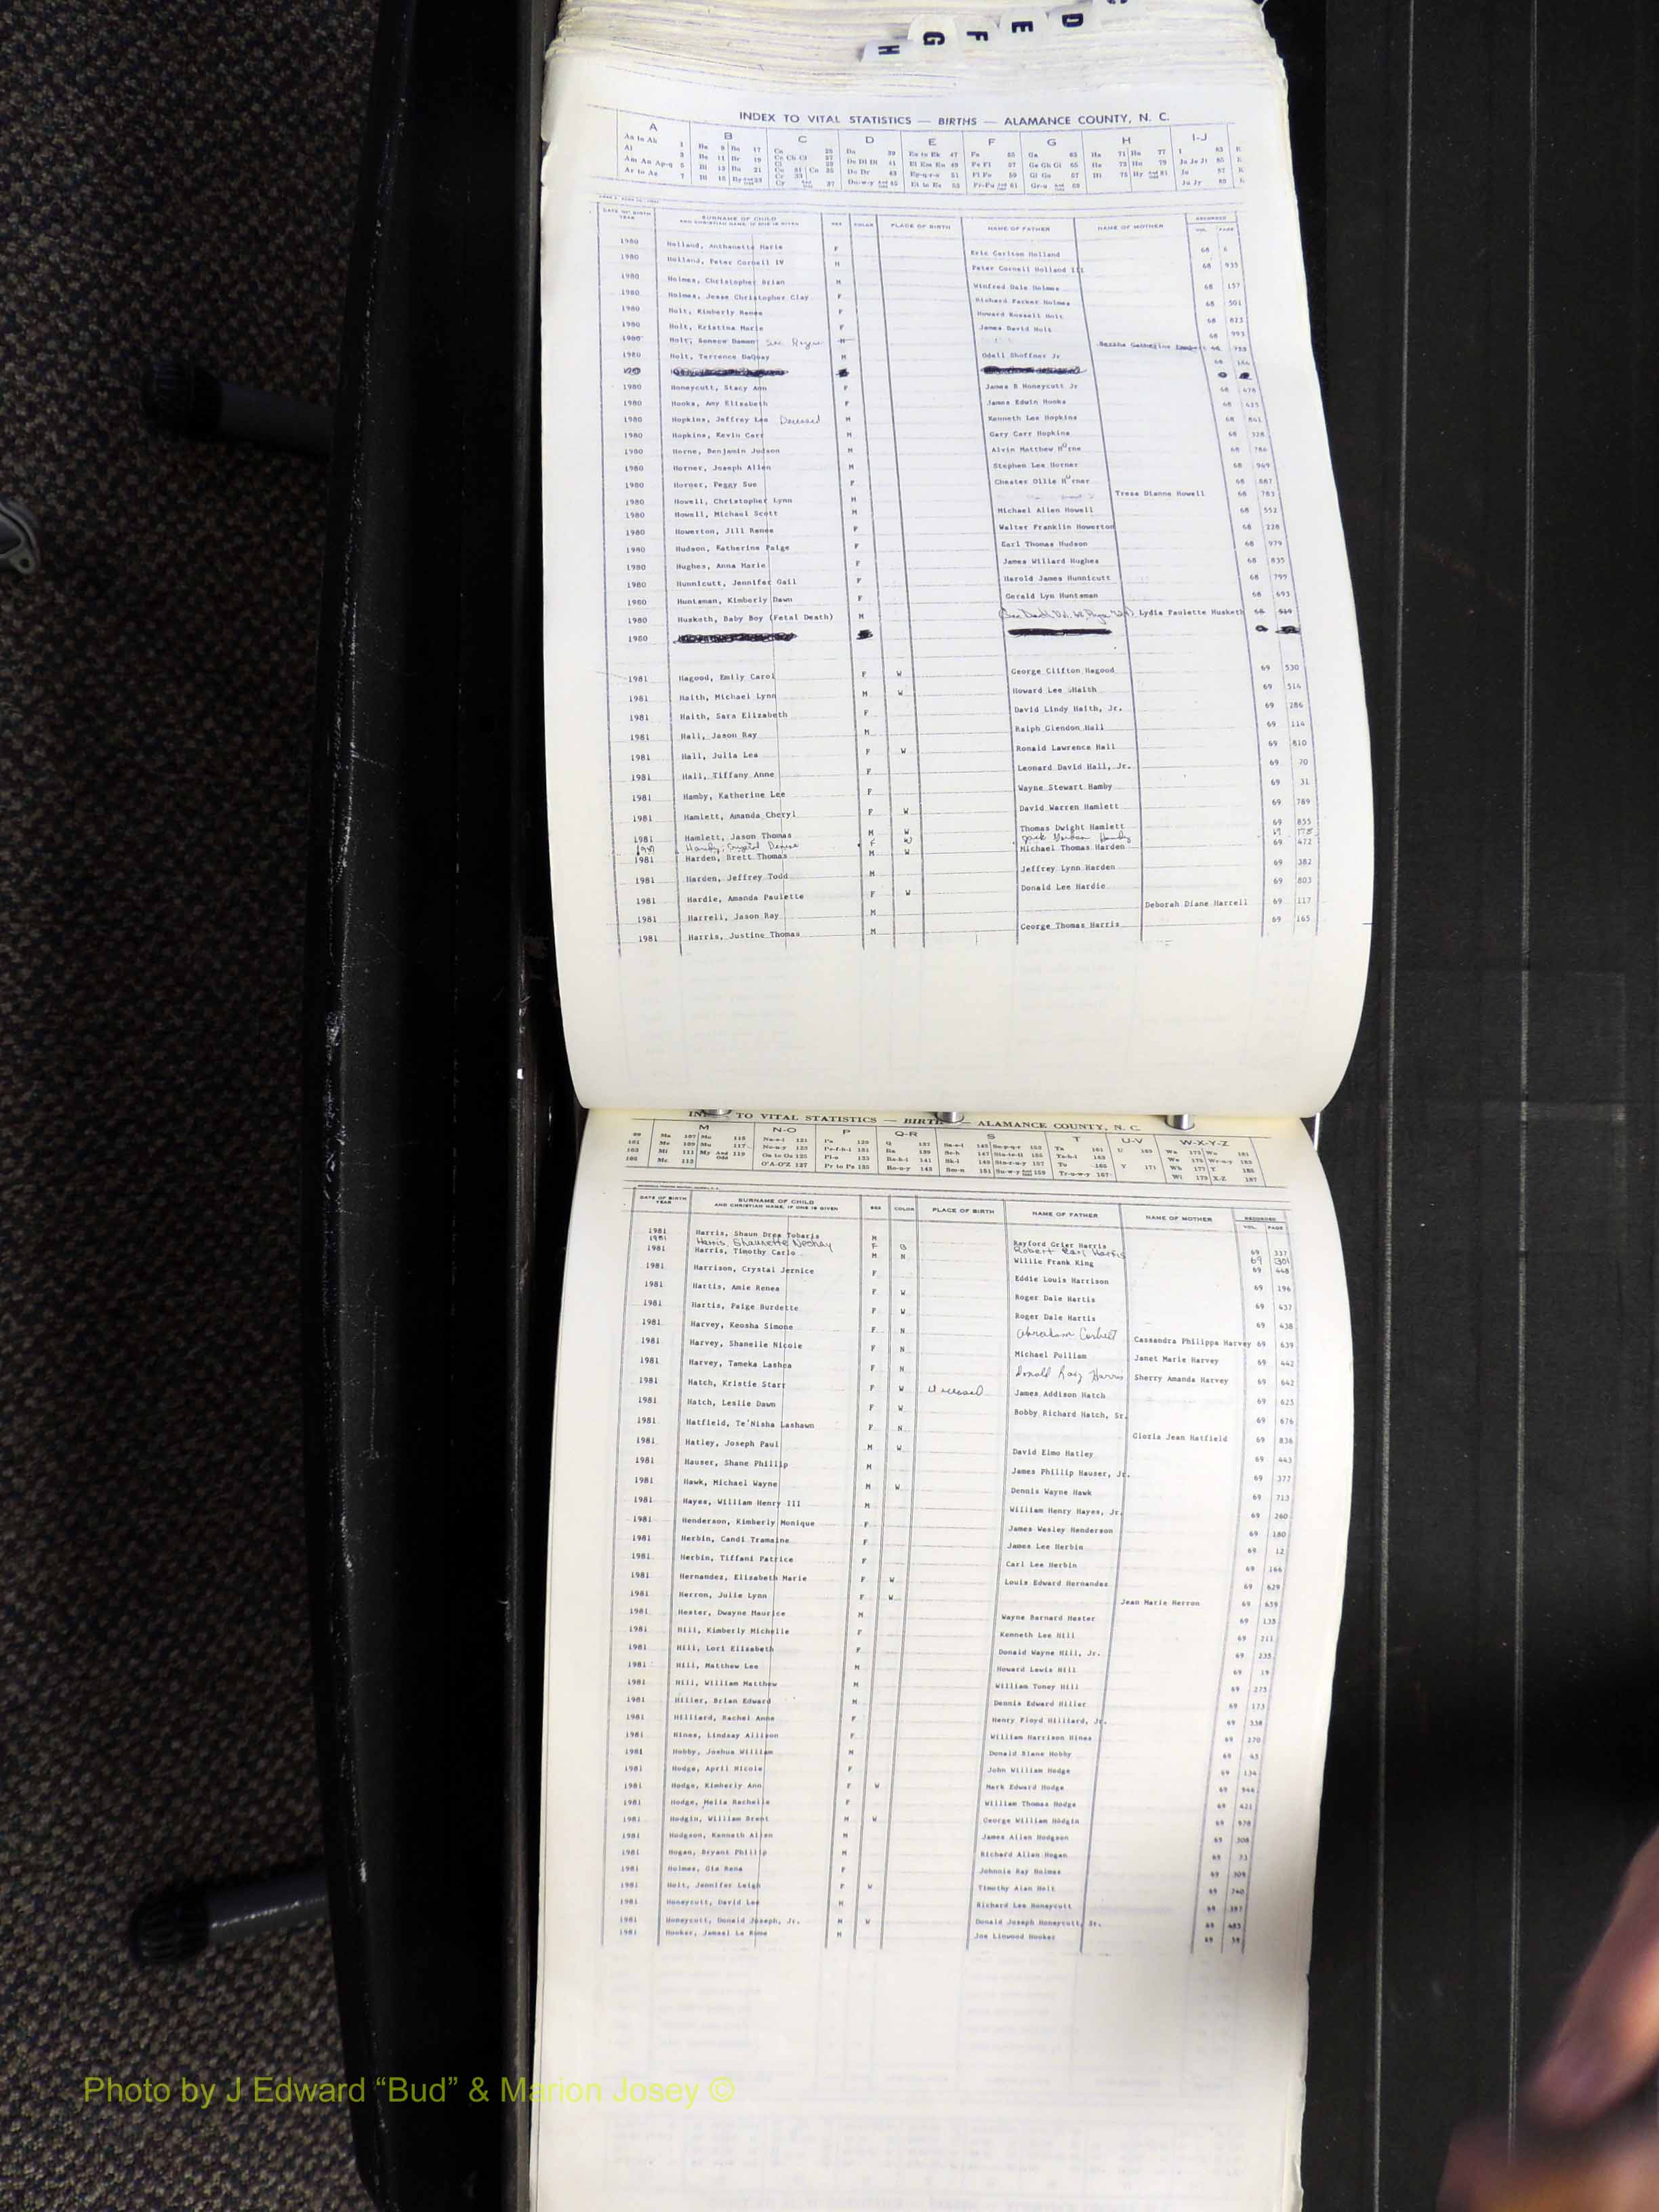 D
E
F
G
H
INDEX TO VITAL STATISTICS — BIRTHS — ALAMANCE COUNTY, N. C.
A B C D E F G H I-J
DATE OF BIRTH YEAR SURNAME OF CHILD AND CHRISTIAN NAME, IF ONE IS GIVEN SEX COLOR PLACE OF BIRTH NAME OF FATHER NAME OF MOTHER RECORDED VOL. PAGE
1980 Holland, Anthanette Marie F Eric Carlson Holland 68 6
1980 Holland, Peter Cornell IV M Peter Cornell Holland III 68 935
1980 Holmes, Christopher Brian M Winfred Dale Holmes 68 157
1980 Holmes, Jesse Christopher Clay F Richard Parker Holmes 68 501
1980 Holt, Kimberly Renee F Howard Russell Holt 68 823
1980 Holt, Kristina Marie F James David Holt 68 993
1980 Holt, Damon M Catherine
1980 Holt, Terrence DaQuay M Odell Shoffner Jr 68
1980 Honeycutt, Stacy Ann F James B Honeycutt Jr 68 478
1980 Hooks, Amy Elizabeth F James Edwin Hooks 68 425
1980 Hopkins, Jeffrey Lee Deceased M Kenneth Lee Hopkins 68 841
1980 Hopkins, Kevin Carr M Gary Carr Hopkins 68 328
1980 Horne, Benjamin Judson M Alvin Matthew Horne 68 786
1980 Horner, Joseph Allen M Stephen Lee Horner 68 949
1980 Horner, Peggy Sue F Chester Ollie Horner 68 887
1980 Howell, Christopher Lynn M Tresa Dianne Howell 68 783
1980 Howell, Michael Scott M Michael Allen Howell 68 552
1980 Howerton, Jill Renee F Walter Franklin Howerton 68 228
1980 Hudson, Katherine Paige F Earl Thomas Hudson 68 979
1980 Hughes, Anna Marie F James Willard Hughes 68 835
1980 Hunnicutt, Jennifer Gail F Harold James Hunnicutt 68 799
1980 Huntsman, Kimberly Dawn F Gerald Lyn Huntsman 68 693
1980 Husketh, Baby Boy (Fetal Death) M Lydia Paulette Husketh 68
1980
1981 Hagood, Emily Carol F W George Clifton Hagood 69 530
1981 Haith, Michael Lynn M W Howard Lee Haith 69 514
1981 Haith, Sara Elizabeth F David Lindy Haith, Jr. 69 286
1981 Hall, Jason Ray M Ralph Glendon Hall 69 114
1981 Hall, Julia Lea F W Ronald Lawrence Hall 69 810
1981 Hall, Tiffany Anne F Leonard David Hall, Jr. 69 70
1981 Hamby, Katherine Lee F Wayne Stewart Hamby 69 31
1981 Hamlett, Amanda Cheryl F W David Warren Hamlett 69 789
1981 Hamlett, Jason Thomas M W Thomas Dwight Hamlett 69 855
1981 Handy, Crystal Denise F W Jack Handy 69 178
1981 Harden, Brett Thomas M W Michael Thomas Harden 69 472
1981 Harden, Jeffrey Todd M Jeffrey Lynn Harden 69 382
1981 Hardie, Amanda Paulette F W Donald Lee Hardie 69 803
1981 Harrell, Jason Ray M Deborah Diane Harrell 69 117
1981 Harris, Justine Thomas M George Thomas Harris 69 165
TO VITAL STATISTICS — BIRTHS ALAMANCE COUNTY, N. C.
M N-O P Q-R S T U-V W-X-Y-Z
DATE OF BIRTH YEAR SURNAME OF CHILD AND CHRISTIAN NAME, IF ONE IS GIVEN SEX COLOR PLACE OF BIRTH NAME OF FATHER NAME OF MOTHER RECORDED VOL. PAGE
1981 Harris, Shaun Drea Tobaris M Rayford Grier Harris 69 337
1981 Harris, Shaunette Neshay F B Robert Earl Harris 69 301
1981 Harris, Timothy Carlo M N Willie Frank King 69 448
1981 Harrison, Crystal Jernice F Eddie Louis Harrison 69 196
1981 Hartis, Amie Renea F W Roger Dale Hartis 69 437
1981 Hartis, Paige Burdette F W Roger Dale Hartis 69 438
1981 Harvey, Keosha Simone F N Abraham Corbett Cassandra Philippa Harvey 69 639
1981 Harvey, Shanelle Nicole F N Michael Pulliam Janet Marie Harvey 69 442
1981 Harvey, Tameka Lashea F N Donald Ray Harris Sherry Amanda Harvey 69 642
1981 Hatch, Kristie Starr F W Deceased James Addison Hatch 69 625
1981 Hatch, Leslie Dawn F W Bobby Richard Hatch, Sr. 69 676
1981 Hatfield, Te'Nisha Lashawn F N Gloria Jean Hatfield 69 836
1981 Hatley, Joseph Paul M W David Elmo Hatley 69 443
1981 Hauser, Shane Phillip M James Phillip Hauser, Jr. 69 377
1981 Hawk, Michael Wayne M W Dennis Wayne Hawk 69 713
1981 Hayes, William Henry III M William Henry Hayes, Jr. 69 260
1981 Henderson, Kimberly Monique F James Wesley Henderson 69 180
1981 Herbin, Candi Tramaine F James Lee Herbin 69 12
1981 Herbin, Tiffani Patrice F Carl Lee Herbin 69 166
1981 Hernandez, Elizabeth Marie F W Louis Edward Hernandez 69 629
1981 Herron, Julie Lynn F W Jean Marie Herron 69 659
1981 Hester, Dwayne Maurice M Wayne Barnard Hester 69 135
1981 Hill, Kimberly Michelle F Kenneth Lee Hill 69 211
1981 Hill, Lori Elizabeth F Donald Wayne Hill, Jr. 69 235
1981 Hill, Matthew Lee M Howard Lewis Hill 69 19
1981 Hill, William Matthew M William Toney Hill 69 275
1981 Hiller, Brian Edward M Dennis Edward Hiller 69 173
1981 Hilliard, Rachel Anne F Henry Floyd Hilliard, Jr. 69 338
1981 Hines, Lindsay Allison F William Harrison Hines 69 270
1981 Hobby, Joshua William M Donald Blane Hobby 69 45
1981 Hodge, April Nicole F John William Hodge 69 134
1981 Hodge, Kimberly Ann F W Mark Edward Hodge 69 944
1981 Hodge, Melia Rachelle F William Thomas Hodge 69 421
1981 Hodgin, William Brent M W George William Hodgin 69 978
1981 Hodgson, Kenneth Allen M James Allen Hodgson 69 308
1981 Hogan, Bryant Phillip M Richard Allen Hogan 69 73
1981 Holmes, Gia Rena F Johnnie Ray Holmes 69 309
1981 Holt, Jennifer Leigh F W Timothy Alan Holt 69 740
1981 Honeycutt, David Lee M Richard Lee Honeycutt 69 397
1981 Honeycutt, Donald Joseph, Jr. M W Donald Joseph Honeycutt, Sr. 69 483
1981 Hooker, Jamaal La Rome M Joe Linwood Hooker 69 59
Photo by J Edward “Bud” & Marion Josey ©